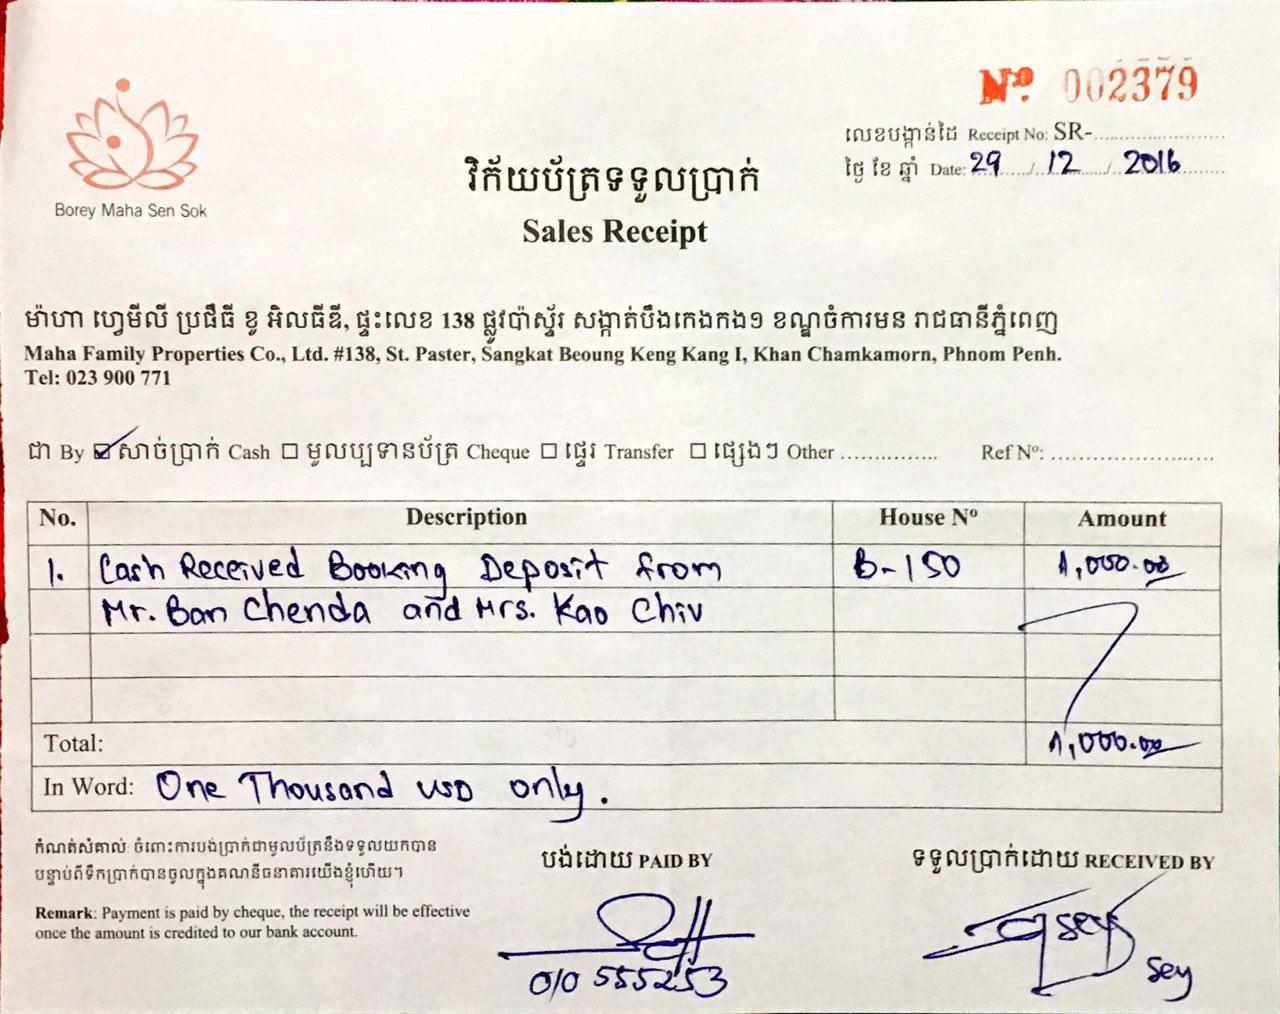 Nº. 002379
លេខបង្កាន់ដៃ Receipt No: SR-........................
ថ្ងៃ ខែ ឆ្នាំ Date: 29 / 12 / 2016
Borey Maha Sen Sok
វិក័យប័ត្រទទួលប្រាក់
Sales Receipt
ម៉ាហា ហ្វេមីលី ប្រផឹធី ខូ អិលធីឌី, ផ្ទះលេខ 138 ផ្លូវប៉ាស្ទ័រ សង្កាត់បឹងកេងកង១ ខណ្ឌចំការមន រាជធានីភ្នំពេញ
Maha Family Properties Co., Ltd. #138, St. Paster, Sangkat Beoung Keng Kang I, Khan Chamkamorn, Phnom Penh.
Tel: 023 900 771
ជា By ☑ សាច់ប្រាក់ Cash ☐ មូលប្បទានប័ត្រ Cheque ☐ ផ្ទេរ Transfer ☐ ផ្សេងៗ Other ............... Ref Nº: .........................
No. Description House Nº Amount
1. Cash Received Booking Deposit from B-150 1,000.00
Mr. Ban Chenda and Mrs. Kao Chiv
Total: 1,000.00
In Word: One Thousand USD only.
កំណត់សំគាល់: ចំពោះការបង់ប្រាក់ជាមូលប័ត្រនឹងទទួលយកបាន
បន្ទាប់ពីទឹកប្រាក់បានចូលក្នុងគណនីធនាគារយើងខ្ញុំហើយ។
Remark: Payment is paid by cheque, the receipt will be effective
once the amount is credited to our bank account.
បង់ដោយ PAID BY
010 555253
ទទួលប្រាក់ដោយ RECEIVED BY
sey